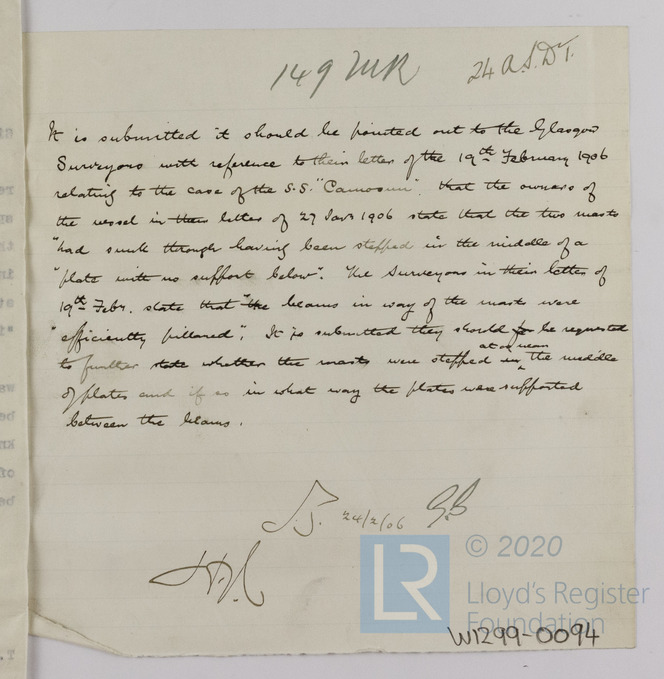 149 MR
24 A.S.Dt.
It is submitted it should be pointed out to the Glasgow
Surveyors with reference to their letter of the 19th February 1906
relating to the case of the S.S. "Camosun", that the owners of
the vessel in their letter of 27 Jany 1906 state that the two masts
"had sunk through having been stepped in the middle of a
"plate with no support below". The Surveyors in their letter of
19th Feby. state that "the beams in way of the masts were
"efficiently pillared". It is submitted they should be requested
to further state whether the masts were stepped in at or near the middle
of plates and if so in what way the plates were supported
between the beams.
24/2/06
LR
© 2020
Lloyd's Register
Foundation
W1299-0094